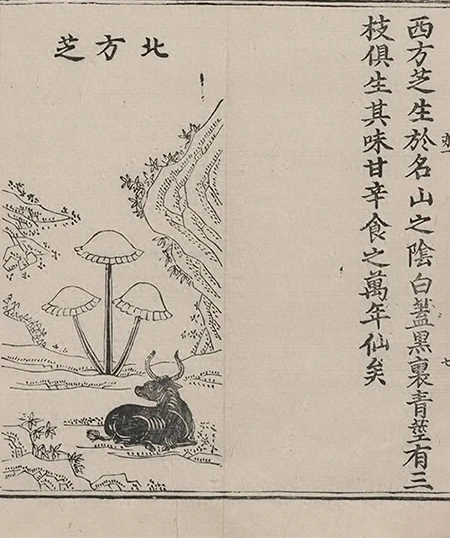 西方芝生於名山之陰白蓋黑裏青莖有三
枝俱生其味甘辛食之萬年仙矣
北方芝
七